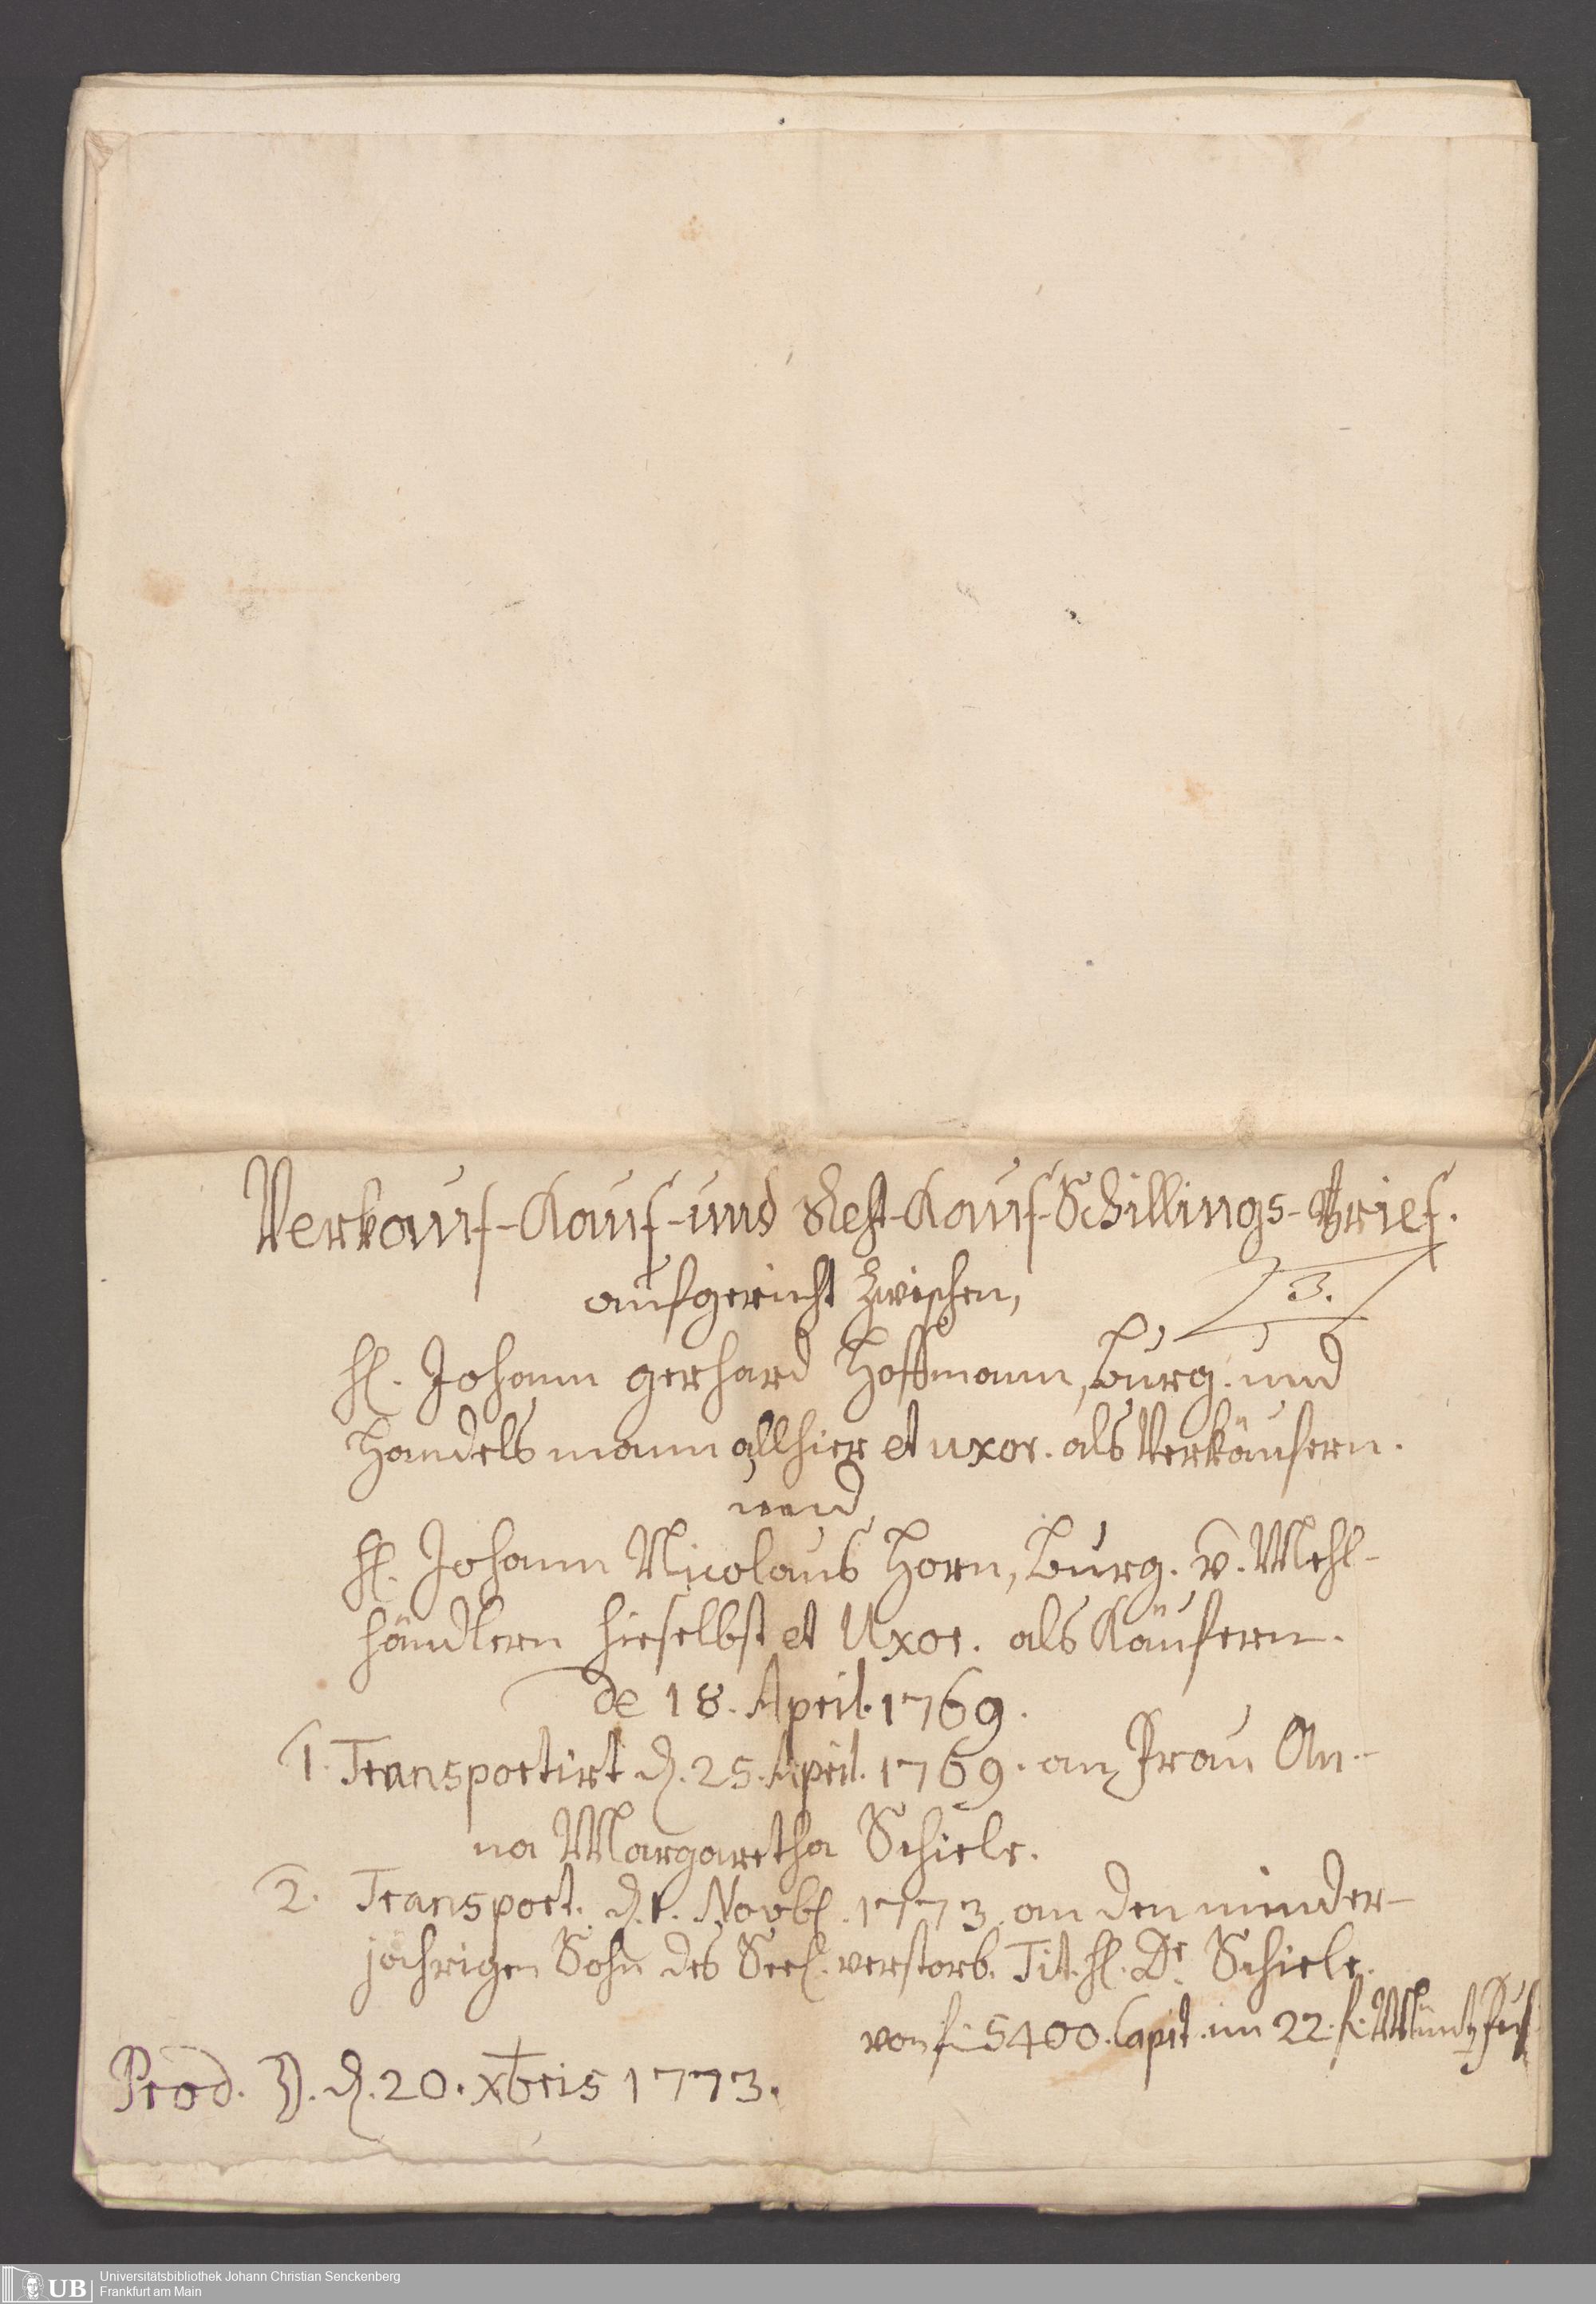 Verkauf-Kauf-und Rest-Kauf-Schillings-Brief.
aufgericht zwischen,
3.
H. Johann gerhard Hoffmann, burg. und
Handelsmann allhier et uxor. als Verkäufern.
und
H. Johann Nicolaus Horn, burg. v. Mehl-
händlern hieselbst et Uxor. als Käufern.
de 18. April. 1769.
1. Transportirt d. 25. April. 1769. an Frau An-
na Margaretha Schiele.
2. Transport. d. 1. Novbl. 1773. an den minder-
jährigen Sohn des Seel. verstorb. Tit. H. Dr. Schiele.
von f. 5400. Capit. im 22. f. Müntzfus
Prod. d. 20. xbris 1773.
UB Universitätsbibliothek Johann Christian Senckenberg
Frankfurt am Main